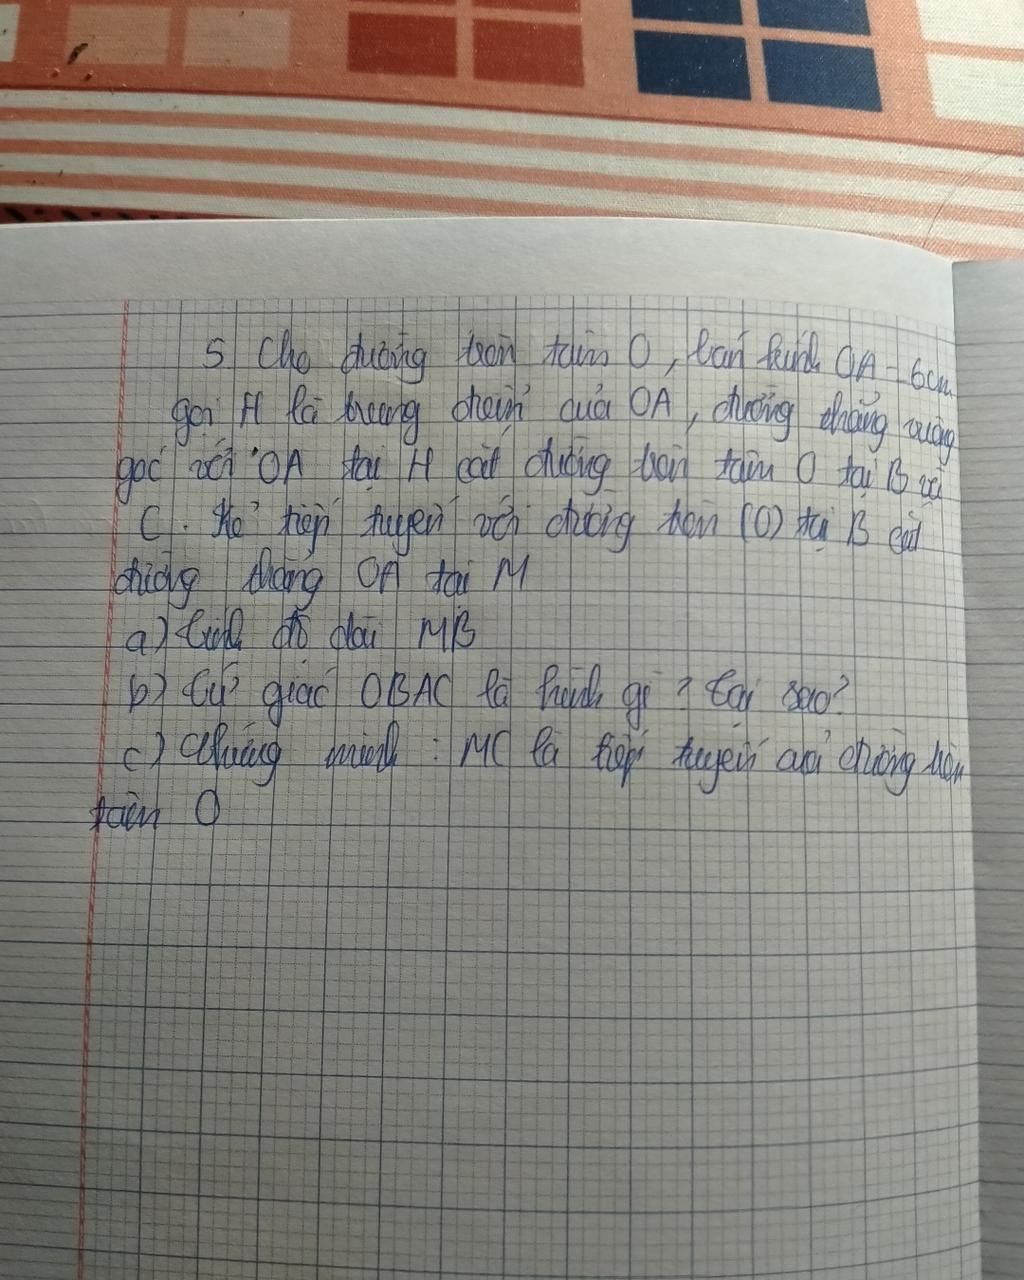 5. Cho đường tròn tâm O, bán kính OA = 6cm
gọi H là trung điểm của OA, đường thẳng vuông
góc với OA tại H cắt đường tròn tâm O tại B và
C. Kẻ tiếp tuyến với đường tròn (O) tại B cắt
đường thẳng OA tại M
a) Tính độ dài MB
b) Tứ giác OBAC là hình gì? Tại sao?
c) Chứng minh : MC là tiếp tuyến của đường tròn
tâm O